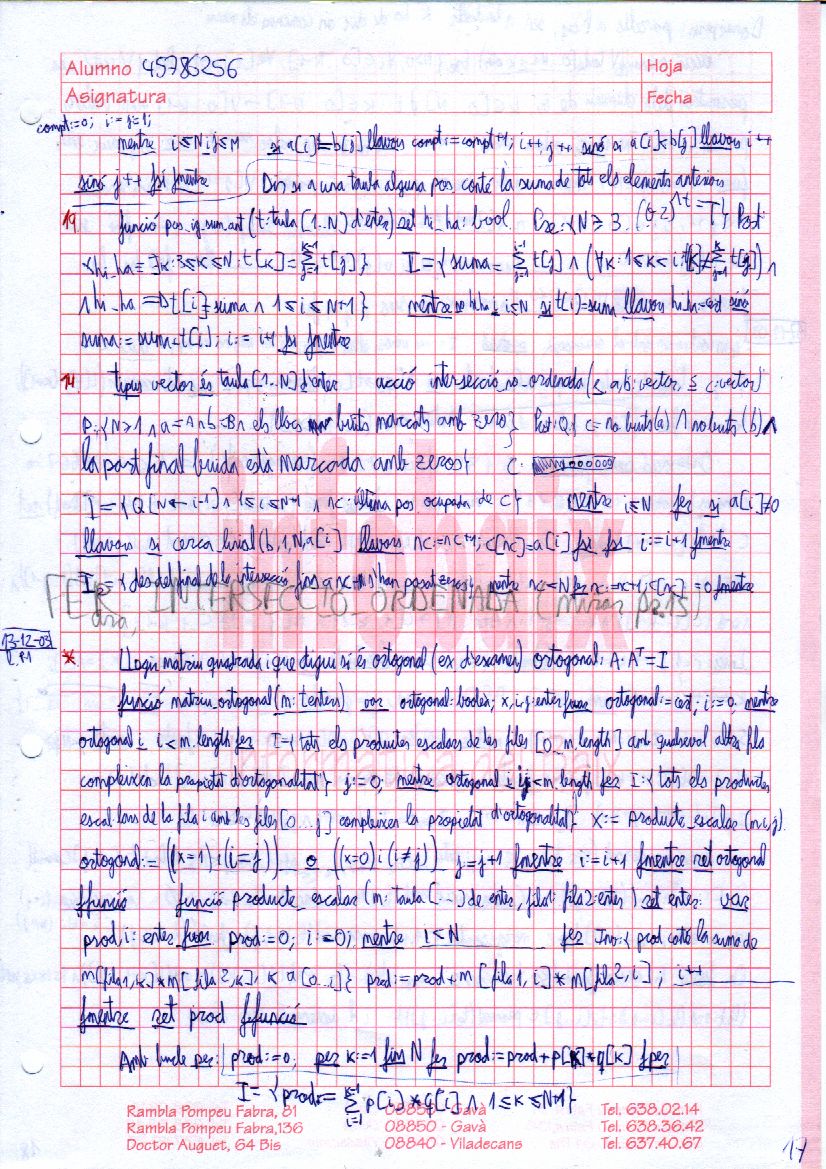 Alumno 45786256 Hoja
Asignatura Fecha
compt:=0; i:=j:=1;
mentre i≤N i j≤M si a[i]=b[j] llavors compt:=compt+1; i++, j++ sinó si a[i]<b[j] llavors i++
sinó j++ fsi fmentre Dir si a una taula alguna pos conté la suma de tots els elements anteriors
19 funció pos_ig_sum_ant (t:taula[1..N] d'enter) ret hi_ha:bool Pre:{N≥3 Post:
{hi_ha=∃k:3≤k≤N:t[k]=∑t[j]} I={suma=∑t[j]∧(∀k:1≤k<i:t[k]≠∑t[j])∧
∧hi_ha⇒t[i]=suma∧1≤i≤N+1} mentre no hi_ha i i≤N si t[i]=suma llavors hi_ha:=cert sinó
suma:=suma+t[i]; i:=i+1 fsi fmentre
14 tipus vector és taula[1..N] d'enter acció intersecció_no_ordenada (e a,b:vector, s c:vector)
P:{N≥1∧a=A∧b=B∧ els llocs buits marcats amb zero} Post:Q{c=no buits(a)∩no buits(b)∧
la part final buida està marcada amb zeros} C:
I={Q[N←i-1]∧1≤i≤N+1∧nc:última pos ocupada de c} mentre i≤N fer si a[i]≠0
llavors si cerca_linial(b,1,N,a[i]) llavors nc:=nc+1; c[nc]=a[i] fsi fsi i:=i+1 fmentre
I={des del final de la intersecció fins a nc s'han posat zeros} mentre nc<N fer nc:=nc+1; c[nc]=0 fmentre
FER INTERSECCIO_ORDENADA (mirar pg.15)
13-12-03
* Llegir matriu quadrada i que digui si és ortogonal (ex d'examen) ortogonal: A·Aᵀ=I
funció matriu_ortogonal (m: tenters) var ortogonal:booleà; x,i,j:enter fvar ortogonal:=cert; i:=0 mentre
ortogonal i i<m.length fer I={tots els productes escalars de les files [0..m.length] amb qualsevol altra fila
compleixen la propietat d'ortogonalitat} j:=0; mentre ortogonal i j<m.length fer I:{tots els productes
escalars de la fila i amb les files [0...j] compleixen la propietat d'ortogonalitat} x:=producte_escalar(m,i,j)
ortogonal:=((x=1) i (i=j)) o ((x=0) i (i≠j)) j=j+1 fmentre i:=i+1 fmentre ret ortogonal
ffunció funció producte_escalar (m:taula[...] de enter, fila1:fila2:enter) ret enter var
prod,i:enter fvar prod:=0; i:=0; mentre i<N fer Inv:{prod conté la suma de
m[fila1,k]*m[fila2,k], k a [0..i]} prod:=prod+m[fila1,i]*m[fila2,i]; i++
fmentre ret prod ffunció
Amb bucle per: prod:=0; per k:=1 fins N fer prod:=prod+p[k]*q[k] fper
I={prod=∑p[i]*q[i]∧1≤k≤N+1}
Rambla Pompeu Fabra, 81 08850 - Gavà Tel. 638.02.14
Rambla Pompeu Fabra,136 08850 - Gavà Tel. 638.36.42
Doctor Auguet, 64 Bis 08840 - Viladecans Tel. 637.40.67
17